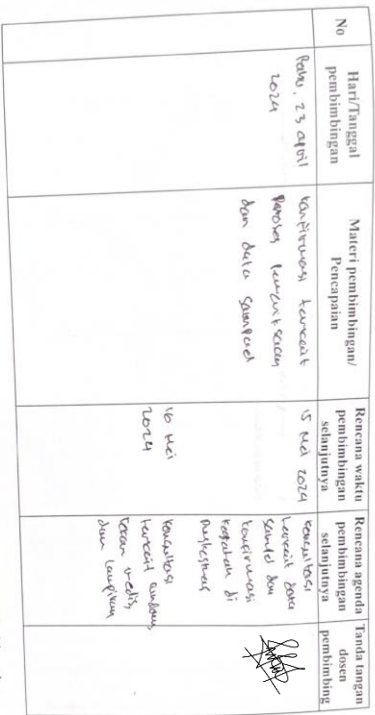 No
Hari/Tanggal
pembimbingan
Materi pembimbingan/
Pencapaian
Rencana waktu
pembimbingan
selanjutnya
Rencana agenda
pembimbingan
selanjutnya
Tanda tangan
dosen
pembimbing
Rabu, 23 april
2024
konfirmasi terkait
proses pemeriksaan
dan data sampel
15 Mei 2024
konsultasi
terkait data
sampel dan
konfirmasi
kegiatan di
Puskesmas
16 Mei
2024
konsultasi
terkait
rekam medis
dan lampiran